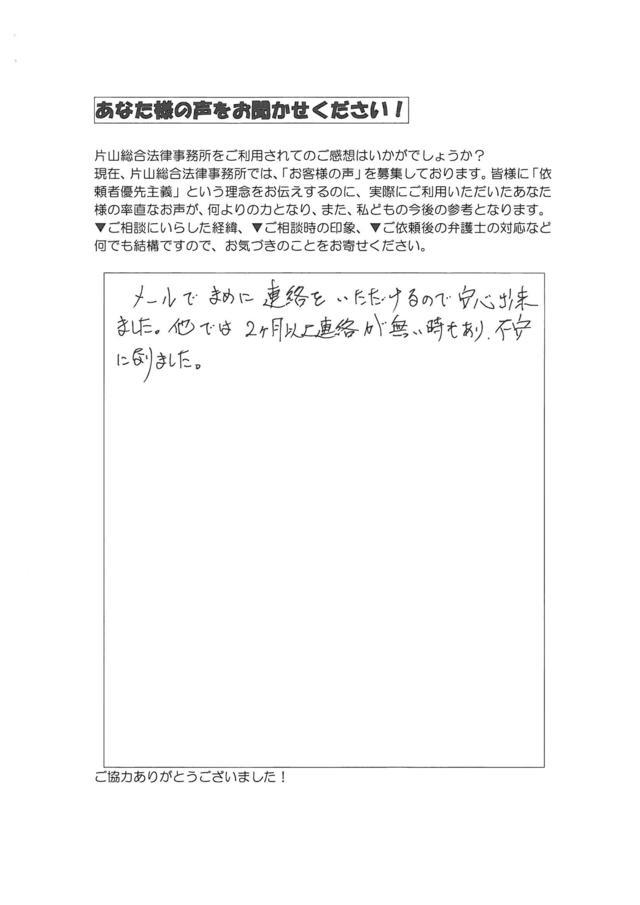 あなた様の声をお聞かせください！
片山総合法律事務所をご利用されてのご感想はいかがでしょうか？
現在、片山総合法律事務所では、「お客様の声」を募集しております。皆様に「依
頼者優先主義」という理念をお伝えするのに、実際にご利用いただいたあなた
様の率直なお声が、何よりの力となり、また、私どもの今後の参考となります。
▼ご相談にいらした経緯、▼ご相談時の印象、▼ご依頼後の弁護士の対応など
何でも結構ですので、お気づきのことをお寄せください。
メールでまめに連絡をいただけるので安心出来
ました。他では2ヶ月以上連絡が無い時もあり、不安
になりました。
ご協力ありがとうございました！